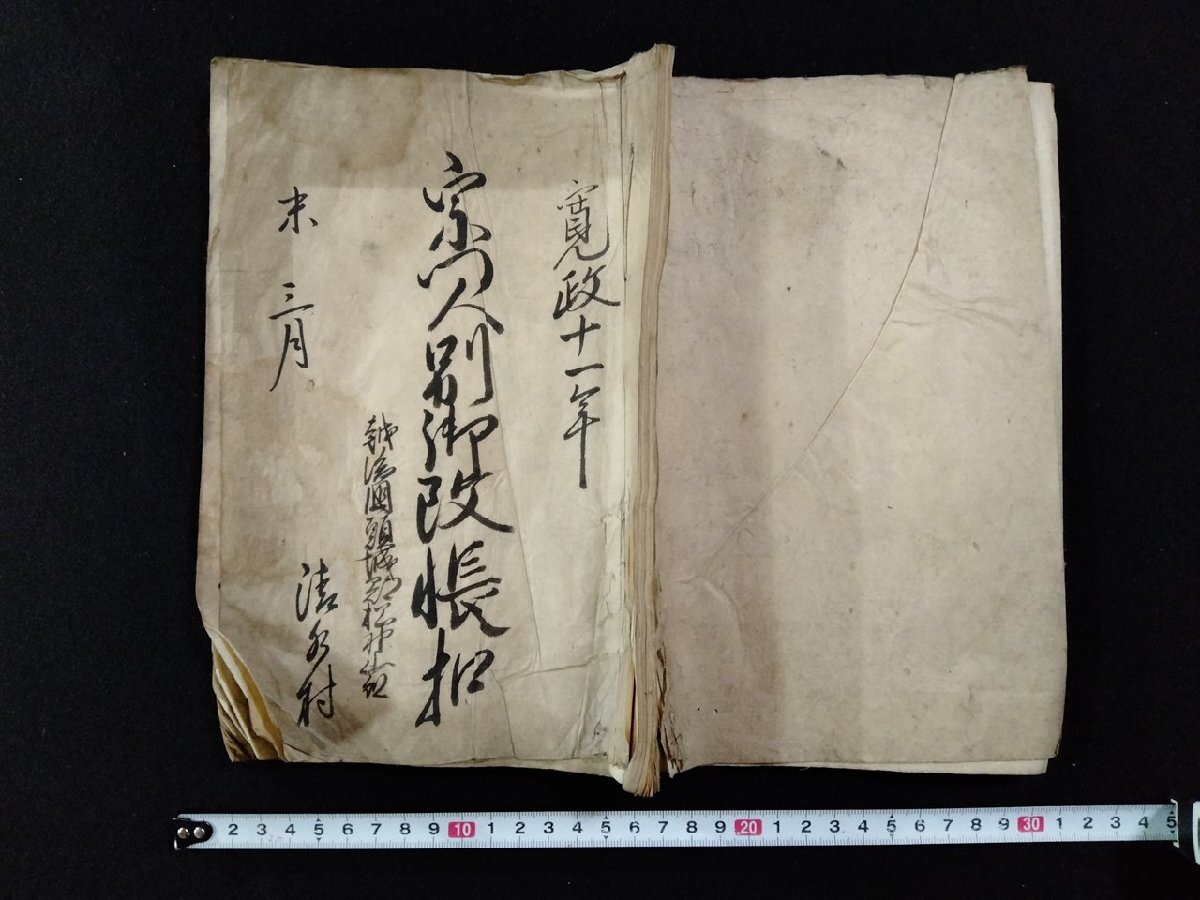 寛政十一年
宗門人別御改帳扣
越後國頸城郡松之山組
未 三月
清水村
2 3 4 5 6 7 8 9 10 1 2 3 4 5 6 7 8 9 20 1 2 3 4 5 6 7 8 9 30 1 2 3 4 5